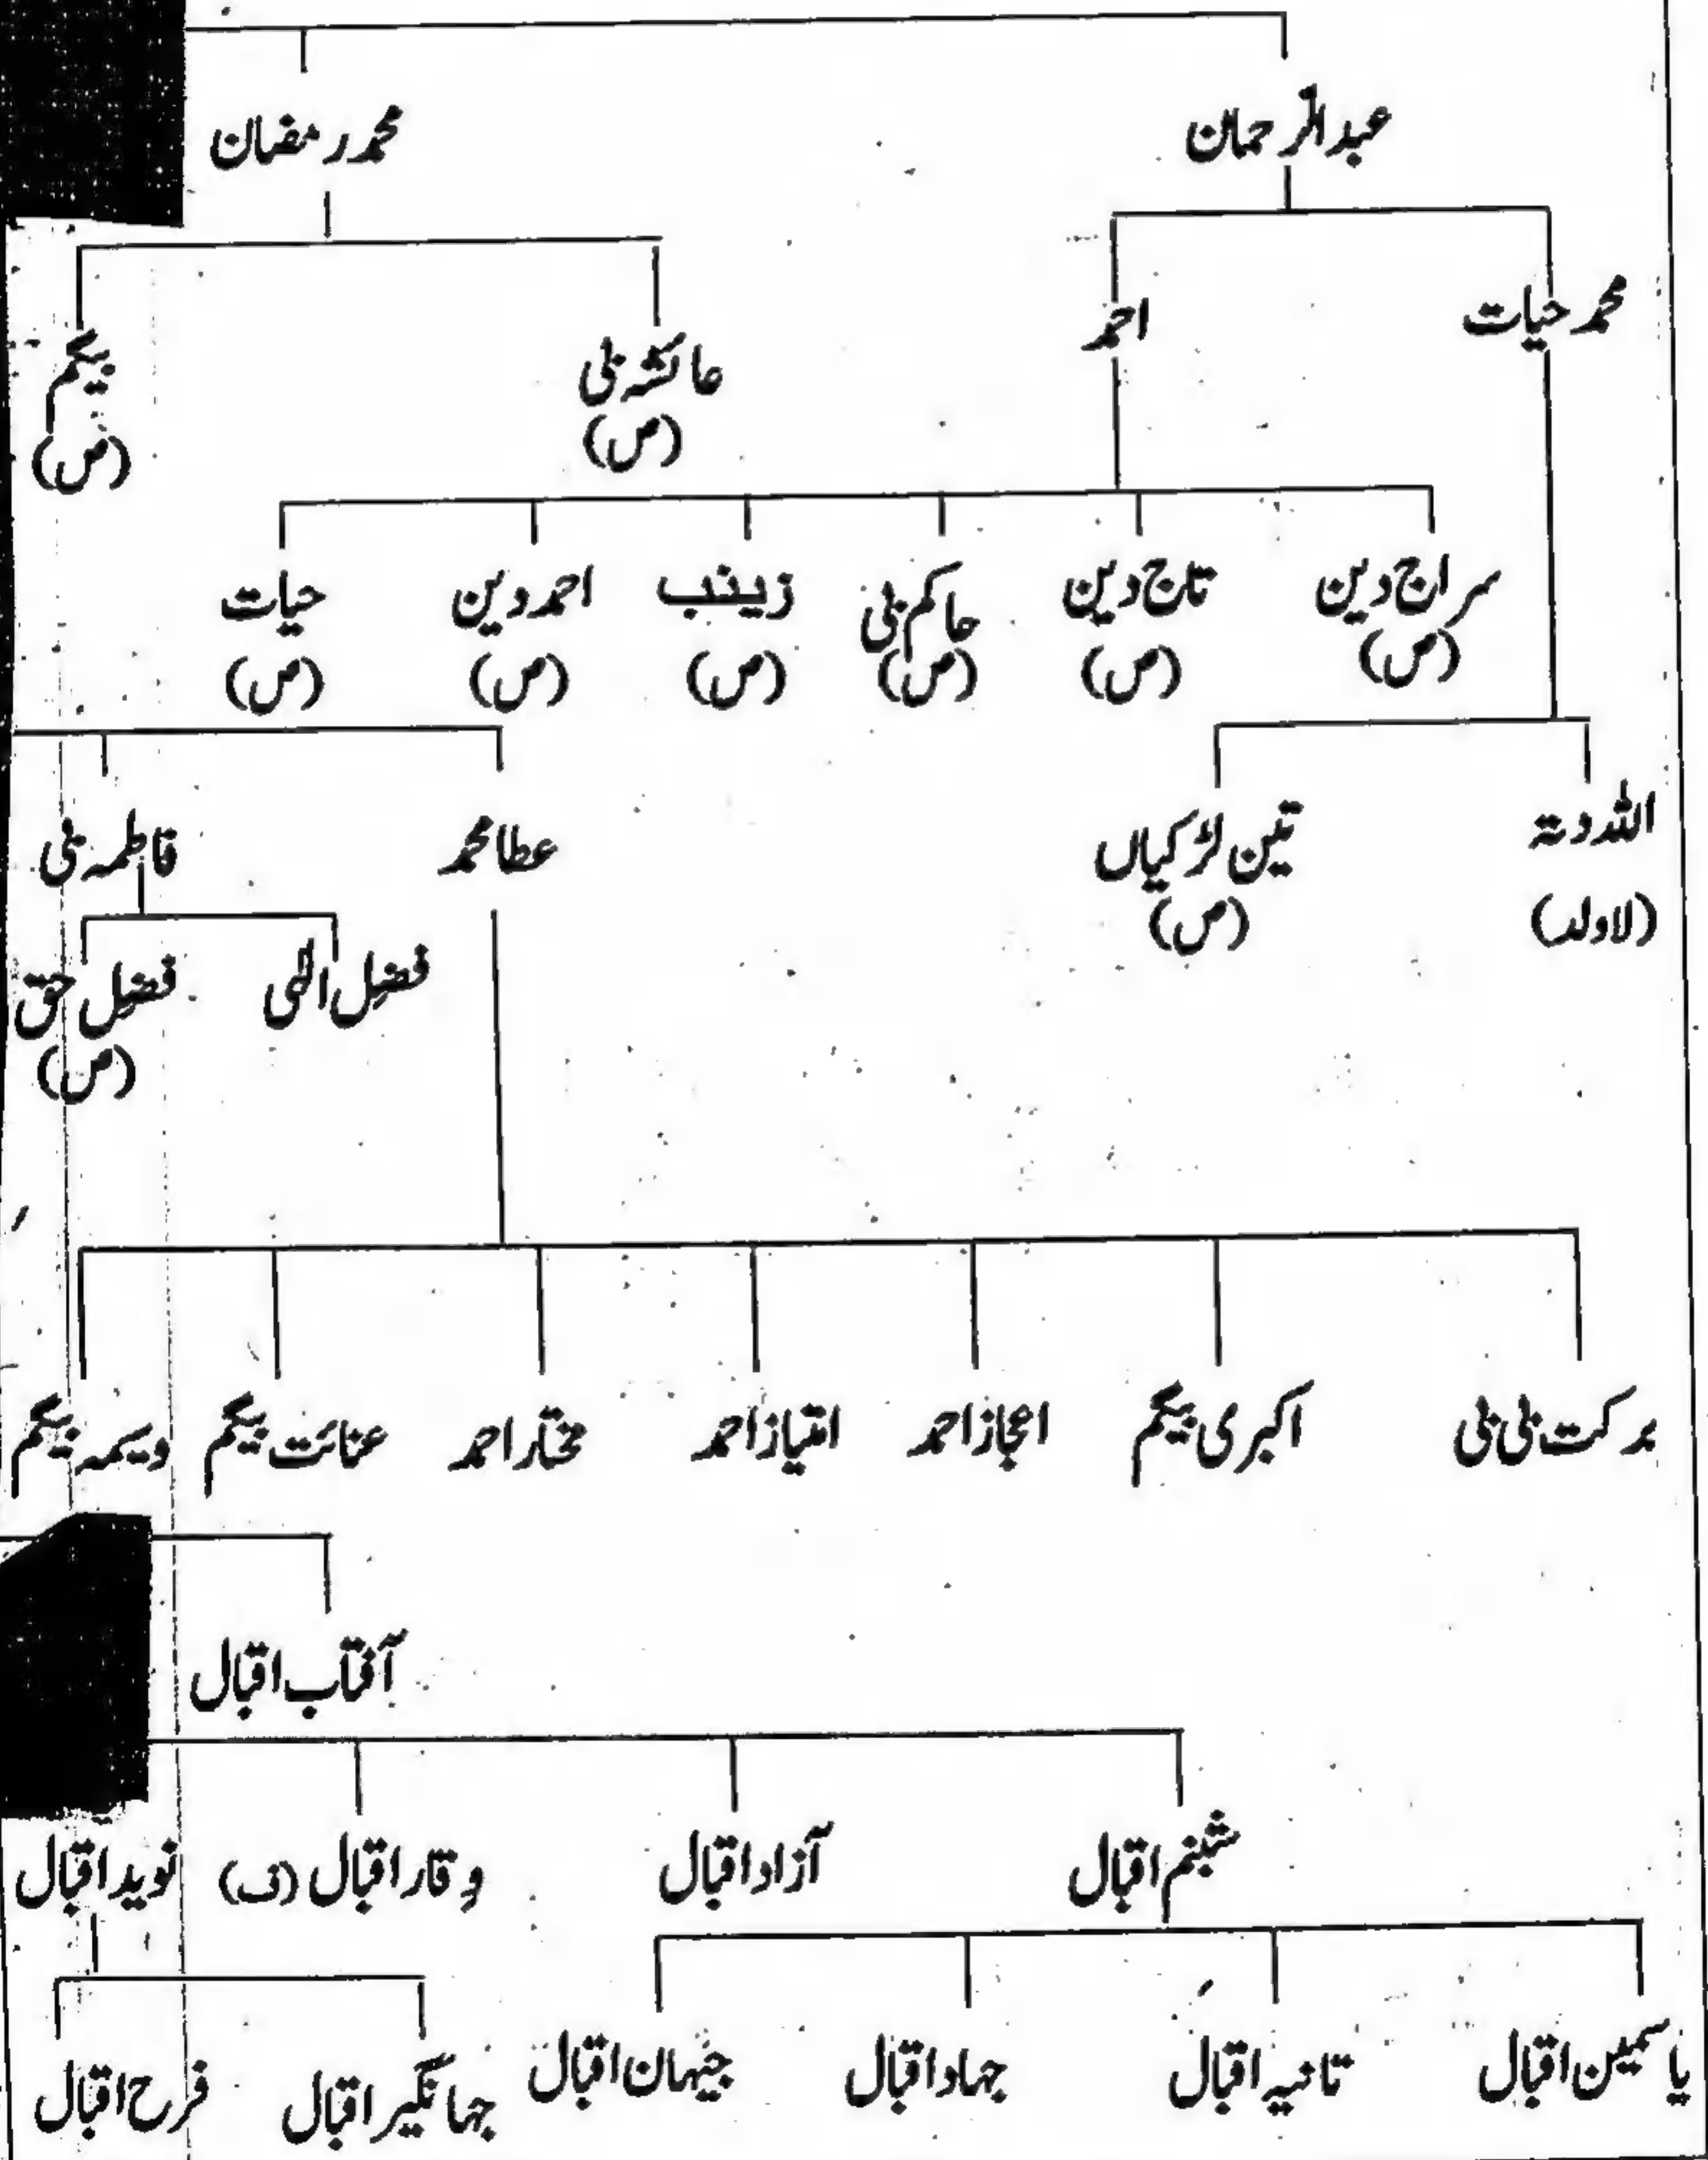 عبدالرحمان
محمد رمضان
محمد حیات
احمد
عائشہ بی
(ص)
بیگم
(ص)
سراج دین
(ص)
تاج دین
(ص)
حاکم بی
(ص)
زینب
(ص)
احمد دین
(ص)
حیات
(ص)
اللہ دتہ
(لاولد)
تین لڑکیاں
(ص)
عطا محمد
فاطمہ بی
فضل الٰہی
فضل حق
(ص)
برکت بی بی
اکبری بیگم
اعجاز احمد
امتیاز احمد
مختار احمد
عنائت بیگم
وسیمہ بیگم
آفتاب اقبال
شبنم اقبال
آزاد اقبال
وقار اقبال (ف)
نوید اقبال
یاسمین اقبال
تانیہ اقبال
جہاد اقبال
جیہان اقبال
جہانگیر اقبال
فرح اقبال